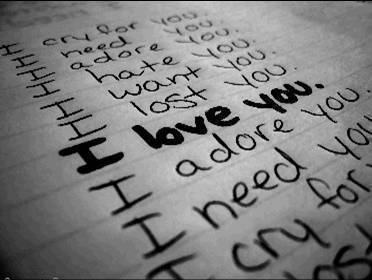 I cry for you.
I need you.
I adore you.
I hate you.
I want you.
I lost you.
I love you.
I adore you.
I need you
I cry for